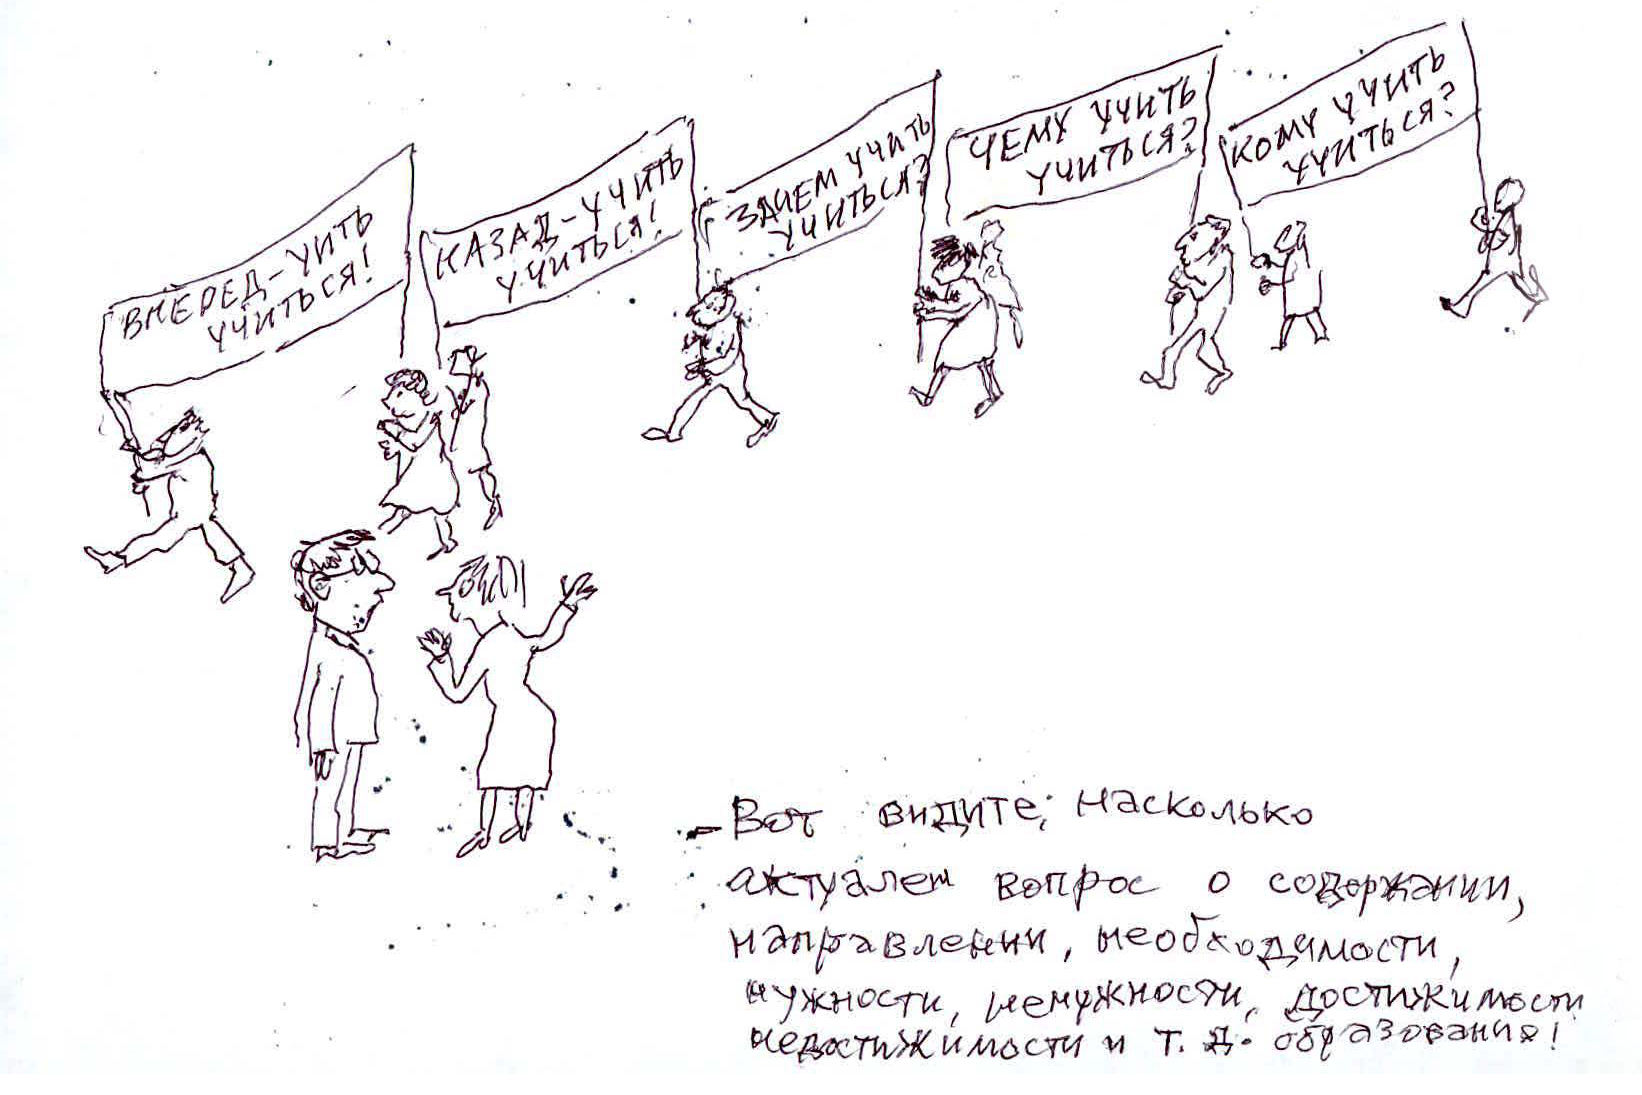 ВПЕРЕД-УИТЬ
УЧИТЬСЯ!
НАЗАД-УЧИТЬ
УЧИТЬСЯ!
ЗАЧЕМ УЧИТЬ
УЧИТЬСЯ?
ЧЕМУ УЧИТЬ
УЧИТЬСЯ?
КОМУ УЧИТЬ
УЧИТЬСЯ?
- Вот видите, насколько
актуален вопрос о содержании,
направлении, необходимости,
нужности, ненужности, достижимости
недостижимости и т. д. образования!